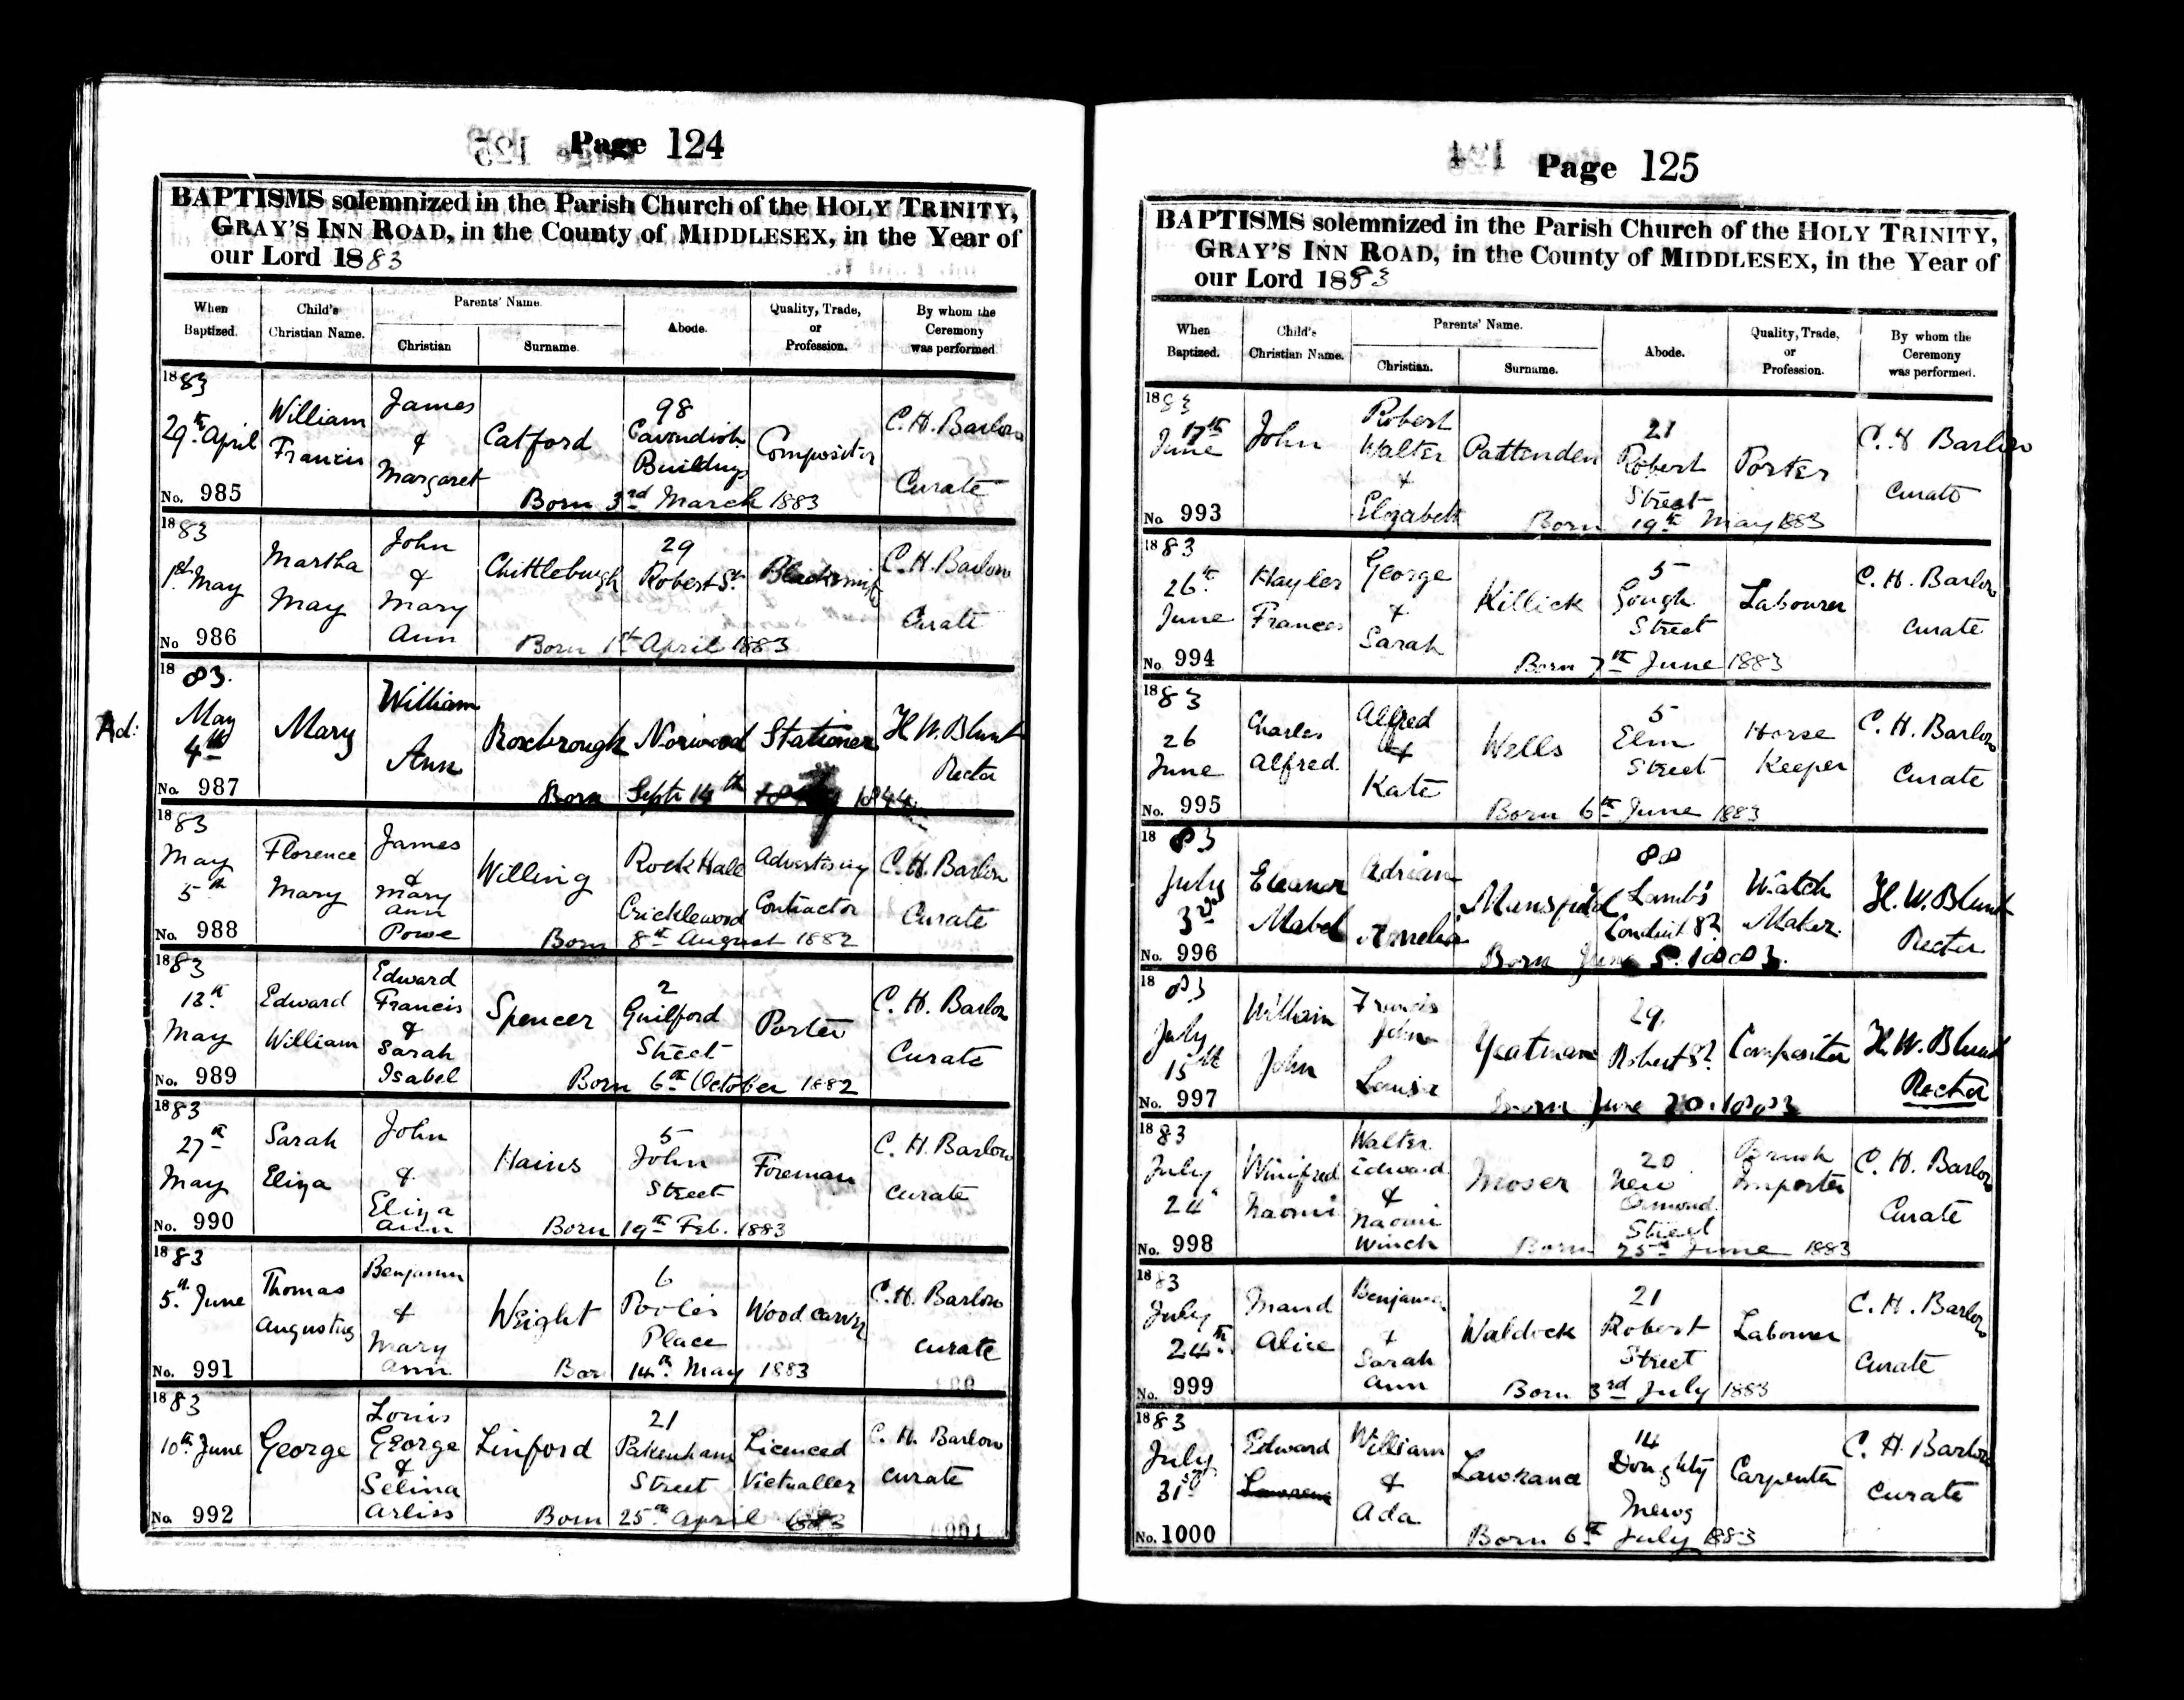 Page 124
BAPTISMS solemnized in the Parish Church of the HOLY TRINITY,
GRAY'S INN ROAD, in the County of MIDDLESEX, in the Year of
our Lord 1883
When Baptized. Child's Christian Name. Parents' Name. Christian Surname Abode. Quality, Trade, or Profession. By whom the Ceremony was performed
1883 29th April William Francis James & Margaret Catford 98 Cavendish Buildings Compositor C. H. Barlow Curate
No. 985 Born 3rd March 1883
1883 1st May Martha May John & Mary Ann Chittleburgh 29 Robert St. Blacksmith C. H. Barlow Curate
No 986 Born 1st April 1883
Ad: 1883. May 4th Mary William Ann Roxbrough Norwood Stationer H. W. Blunt Rector
No. 987 Born Sept 14th 1844
1883 May 5th Florence Mary James & Mary Ann Powe Willing Rock Hall Cricklewood Advertising Contractor C. H. Barlow Curate
No. 988 Born 8th August 1882
1883 13th May Edward William Edward Francis & Sarah Isabel Spencer 2 Guilford Street Porter C. H. Barlow Curate
No. 989 Born 6th October 1882
1883 27th May Sarah Eliza John & Eliza Ann Hains 5 John Street Foreman C. H. Barlow Curate
No. 990 Born 19th Feb. 1883
1883 5th June Thomas Augustus Benjamin & Mary Ann Weight 6 Poole's Place Wood carver C. H. Barlow Curate
No. 991 Born 14th May 1883
1883 10th June George Louis George & Selina Arliss Linford 21 Pakenham Street Licenced Victualler C. H. Barlow Curate
No. 992 Born 25th April 1883
Page 125
BAPTISMS solemnized in the Parish Church of the HOLY TRINITY,
GRAY'S INN ROAD, in the County of MIDDLESEX, in the Year of
our Lord 1883
When Baptized. Child's Christian Name. Parents' Name. Christian. Surname. Abode. Quality, Trade, or Profession. By whom the Ceremony was performed.
1883 17th June John Robert Walter & Elizabeth Pattenden 21 Robert Street Porter C. H Barlow Curate
No 993 Born 19th May 1883
1883 26th June Hayler Frances George & Sarah Killick 5 Gough Street Labourer C. H. Barlow Curate
No 994 Born 7th June 1883
1883 26 June Charles Alfred. Alfred & Kate Wells 5 Elm Street Horse Keeper C. H. Barlow Curate
No. 995 Born 6th June 1883
1883 July 3rd Eleanor Mabel Adrian Amelia Mansfield 88 Lamb's Conduit St. Watch Maker. H. W. Blunt Rector
No. 996 Born June 5. 1883.
1883 July 15th William John Francis John Louisa Yeatman 29. Robert St. Compositor H. W. Blunt Rector
No. 997 Born June 20. 1883
1883 July 24 Winifred Naomi Walter Edward & Naomi Winch Moser 20 New Ormond Street Importer C. H. Barlow Curate
No. 998 Born 25th June 1883
1883 July 24th. Maud Alice Benjamin & Sarah Ann Waldock 21 Robert Street Labourer C. H. Barlow Curate
No. 999 Born 3rd July 1883
1883 July 31st Edward William & Ada Lawrance 14 Doughty Mews Carpenter C. H. Barlow Curate
No. 1000 Born 6th July 1883